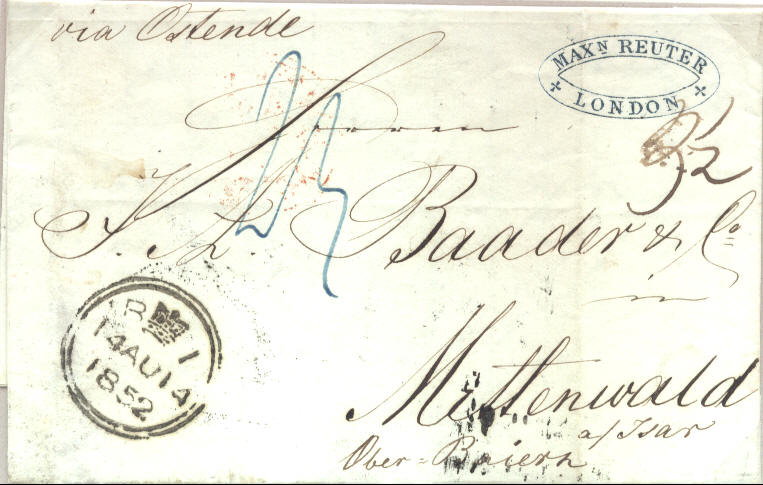 via Ostende
MAXN REUTER
LONDON
Herren
J. L. Baader & Co
in
Mittenwald
a/Isar
Ober=Baiern
BR 1
14AU14
1852